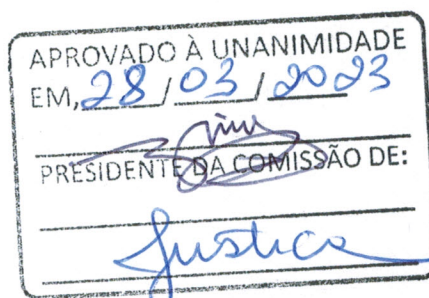 APROVADO À UNANIMIDADE
EM, 28 / 03 / 2023
PRESIDENTE DA COMISSÃO DE:
Justica